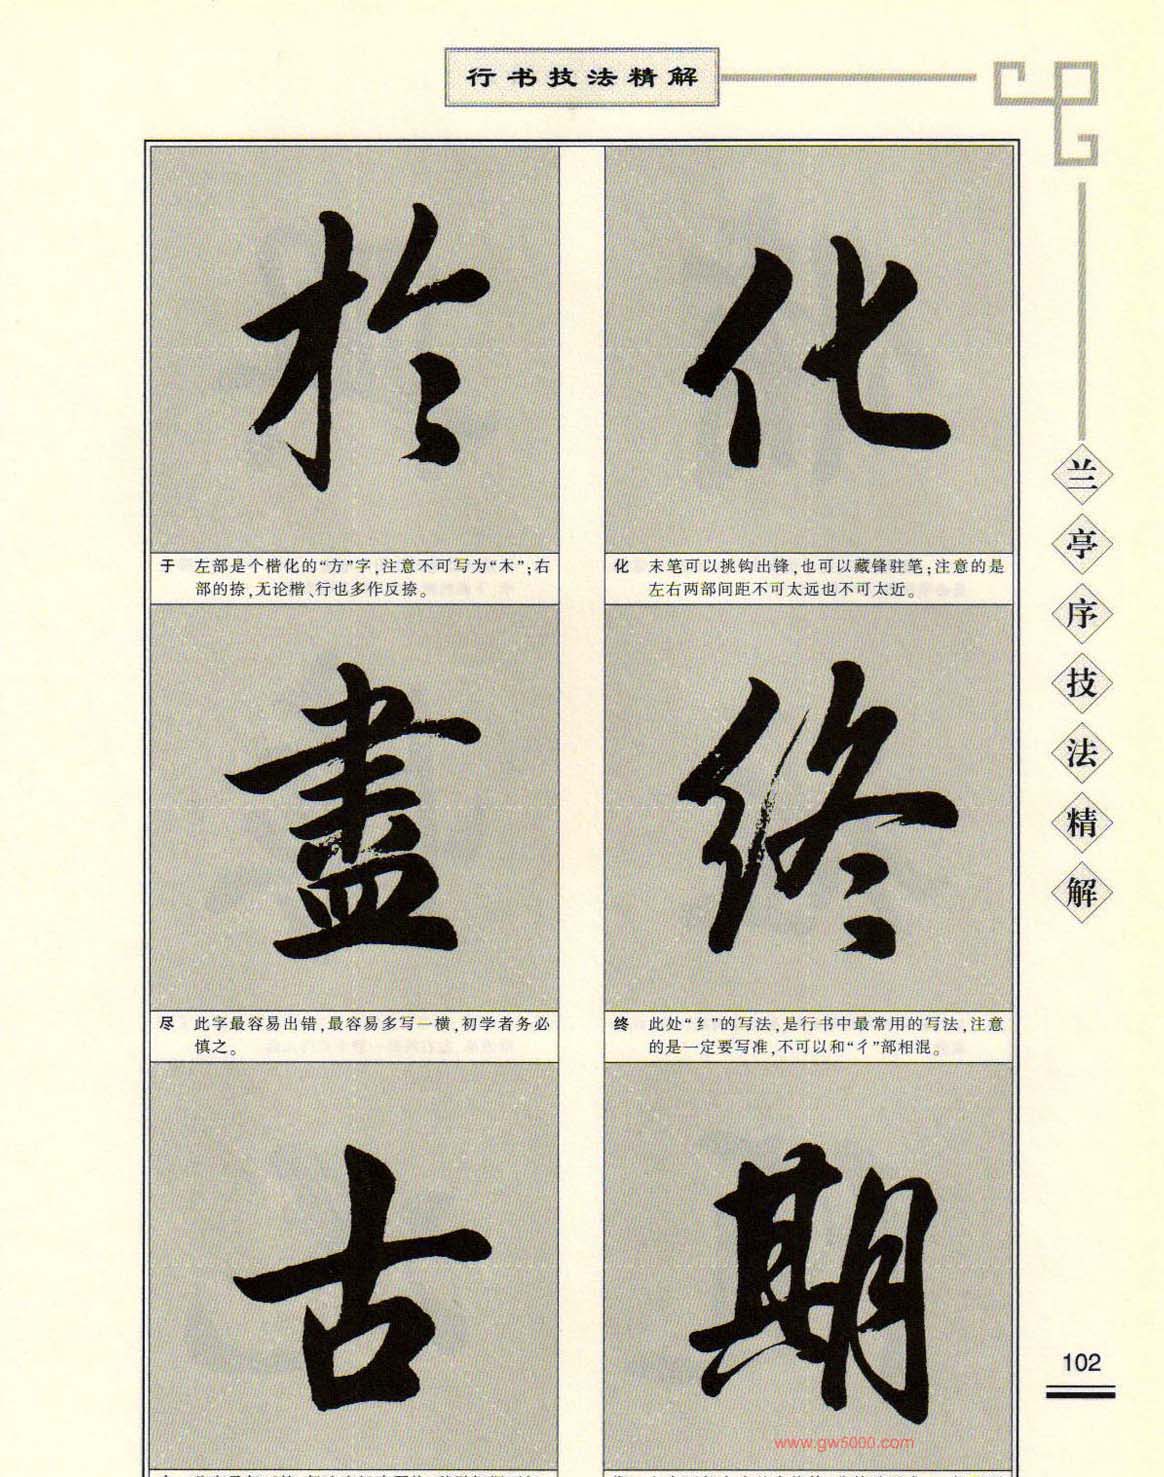 行书技法精解
於
化
于 左部是个楷化的“方”字,注意不可写为“木”;右
部的捺,无论楷、行也多作反捺。
化 末笔可以挑钩出锋,也可以藏锋驻笔;注意的是
左右两部间距不可太远也不可太近。
盡
终
尽 此字最容易出错,最容易多写一横,初学者务必
慎之。
终 此处“纟”的写法,是行书中最常用的写法,注意
的是一定要写准,不可以和“彳”部相混。
古
期
兰亭序技法精解
102
www.gw5000.com